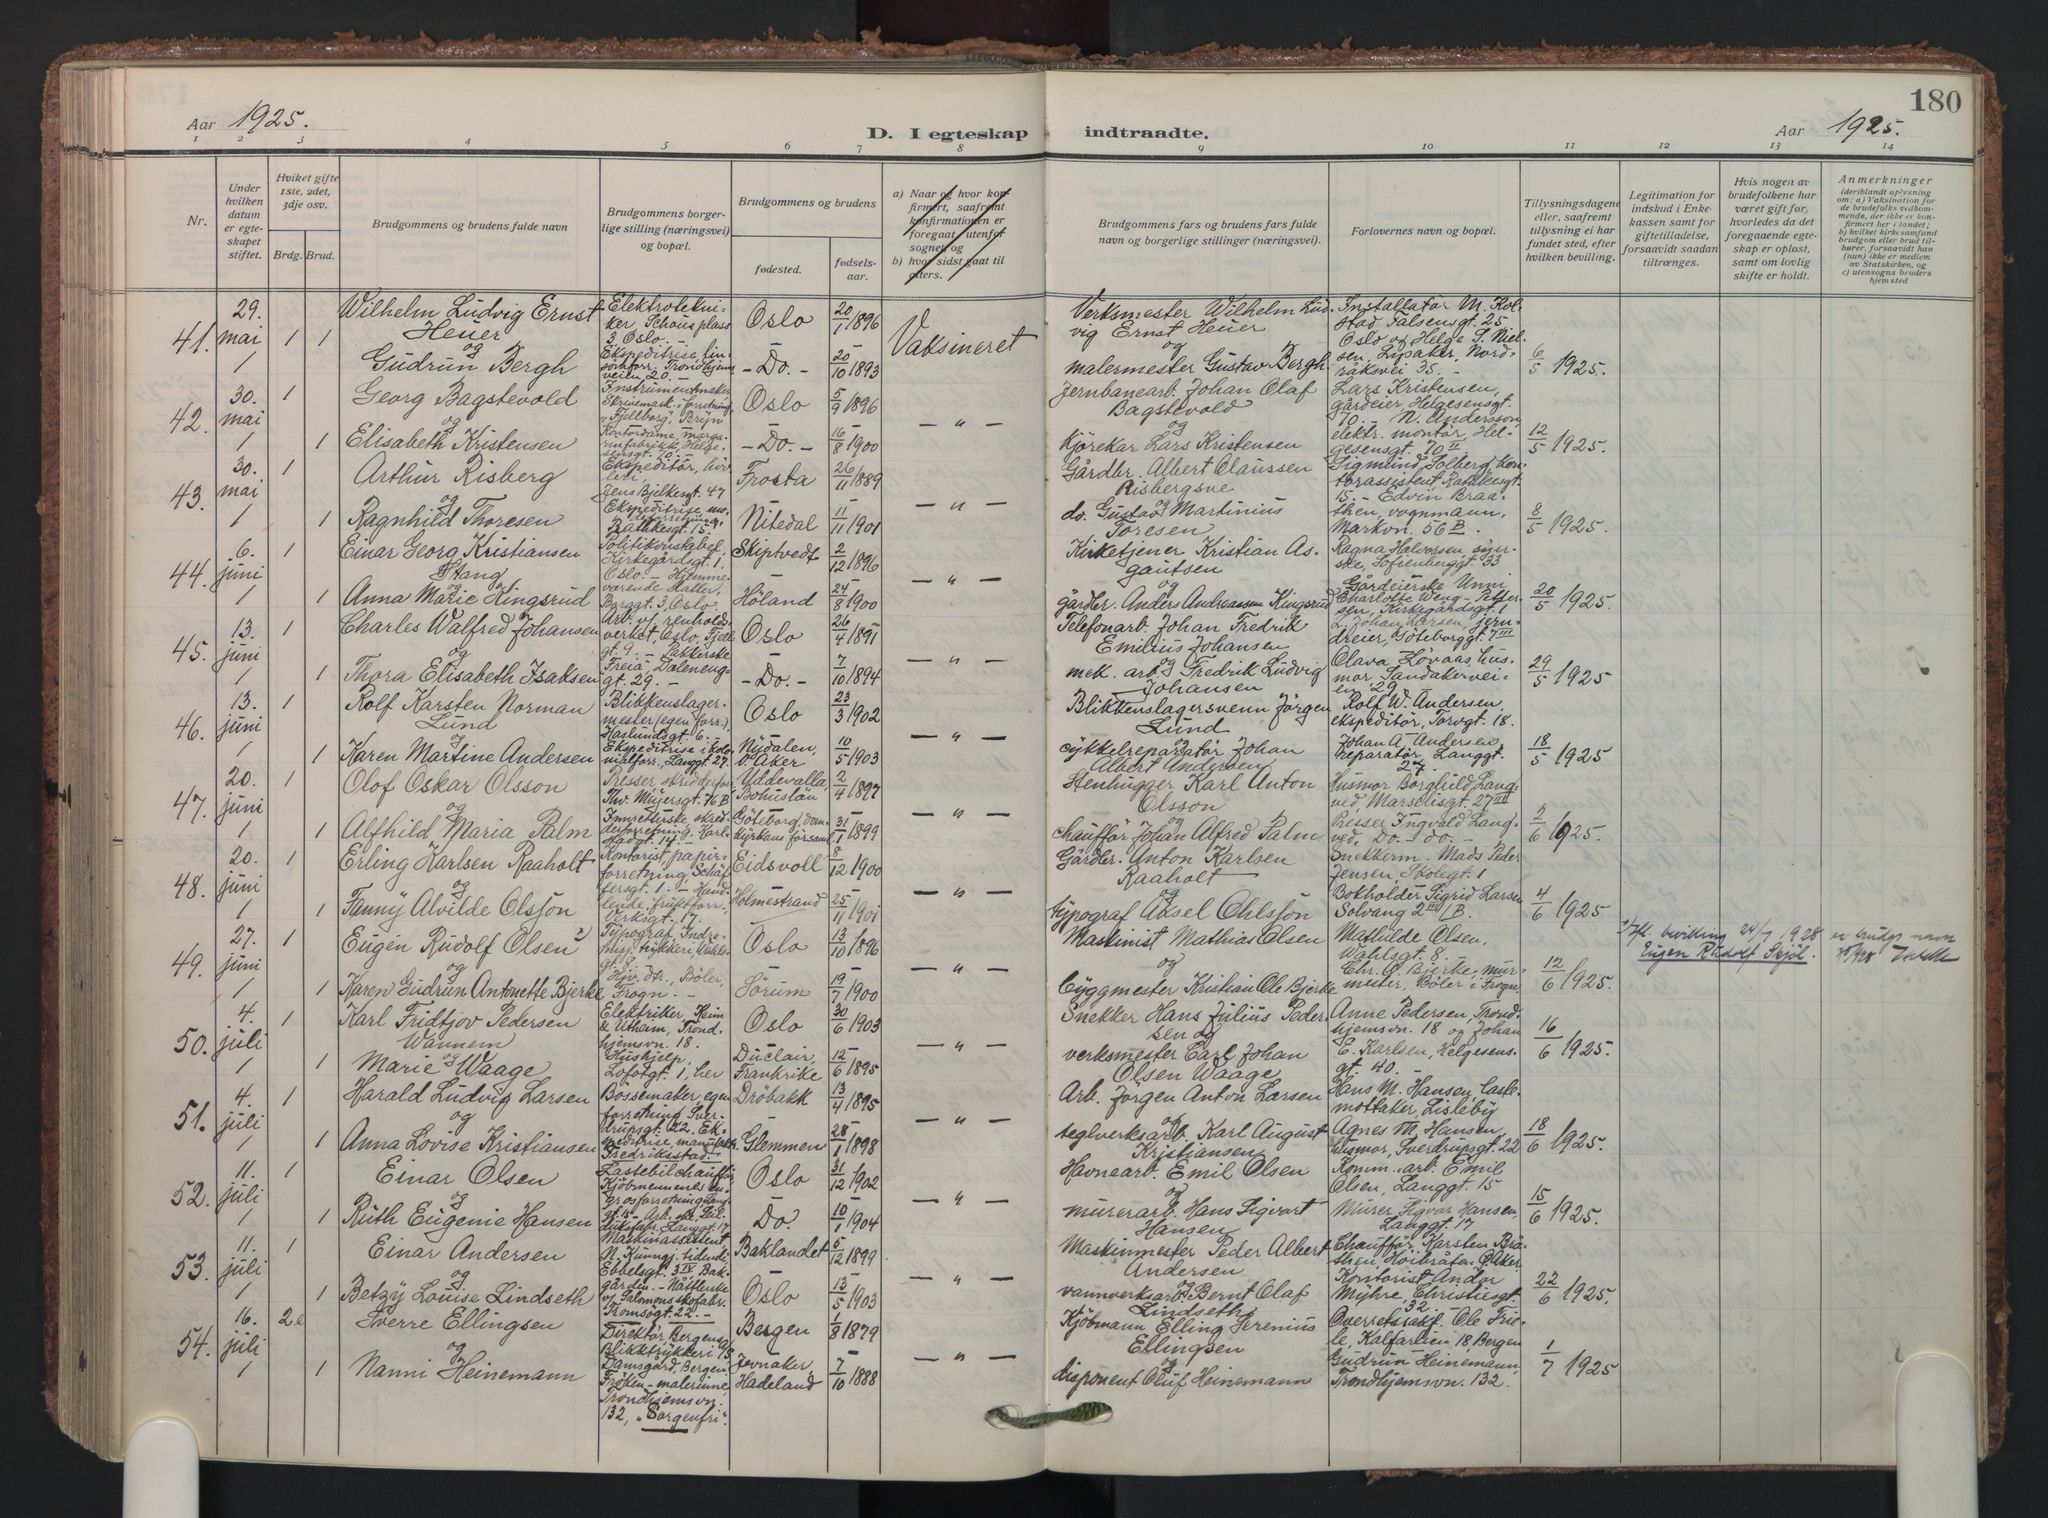 180
Aar 1925.
D. I egteskap indtraadte.
Aar 1925.
1 2 3 4 5 6 7 8 9 10 11 12 13 14
Nr.
Under hvilken datum er egteskapet stiftet.
Hviket gifte 1ste, 2det, 3dje osv.
Brdg. Brud.
Brudgommens og brudens fulde navn
Brudgommens borgerlige stilling (næringsvei) og bopæl.
Brudgommens og brudens
fødested.
fødselsaar.
a) Naar og hvor konfirmert, saafremt konfirmationen er foregaat utenfor sognet, og
b) hvor sidst gaat til alters.
Brudgommens fars og brudens fars fulde navn og borgerlige stillinger (næringsvei).
Forlovernes navn og bopæl.
Tillysningsdagene eller, saafremt tillysning ei har fundet sted, efter hvilken bevilling.
Legitimation for indskud i Enkekassen samt for giftetilladelse, forsaavidt saadan tiltrænges.
Hvis nogen av brudefolkene har været gift før, hvorledes da det foregaaende egteskap er opløst, samt om lovlig skifte er holdt.
Anmerkninger
(deriblandt oplysning om: a) Vaksination for de brudefolks vedkommende, der ikke er konfirmert her i landet; b) hvilket kirksamfund brudgom eller brud tilhører, forsaavidt han (hun) ikke er medlem av Statskirken, og c) utensogns bruders hjemsted
41. 29. mai 1 1 Wilhelm Ludvig Ernst Heuer
og
Gudrun Bergh
Elektrotekniker, Schous plass 3, Oslo.
Oslo 20/1 1896
Do. 20/10 1893
Vaksineret
Verksmester Wilhelm Ludvig Ernst Heuer
og
malermester Gustav Bergh
Installatør M. Kolstad Falsensgt. 25 Oslo og Helge S. Nielsen, Lipaker, Nordraksvei 35.
6/5 1925.
42. 30. mai 1 1 Georg Bagstevold
og
Elisabeth Kristensen
Instrumentmaker
Oslo 5/9 1896
Do. 16/8 1900
— " —
Jernbanearb. Johan Olaf Bagstevold
og
Kjørekar Lars Kristensen
Lars Kristensen, gårdeier Helgesensgt. 70. N. Andersson, elektr. montør, Helgesensgt. 70 II
12/5 1925.
43. 30. mai 1 1 Arthur Risberg
og
Ragnhild Thoresen
Jens Bjelkesgt. 47
Ekspeditrise
Rathkesgt. 15.
Frosta 26/11 1889
Nitedal 11/11 1901
— " —
Gårdbr. Albert Claussen Risbergsve
og
do. Gustav Martinius Toresen
Sigmund Solberg, kontorassistent Rathkesgt. 15. Edvin Braathen, vognmann, Markvn. 56 B.
8/5 1925.
44. 6. juni 1 1 Einar Georg Kristiansen Stang
og
Anna Marie Kingsrud
Politikonstabel, Kirkegårdsgt. 1, Oslo. Hjemmeværende datter, Borggt. 3, Oslo.
Skiptvedt 2/12 1896
Høland 24/8 1900
— " —
Kirketjener Kristian Asgautsen
og
gårdbr. Anders Andreassen Kingsrud
Ragna Halvorsen, syerske, Sofienberggt. 33
Gårdeierske Unni Charlotte Weng-Pettersen, Kirkegårdsgt. 1
20/5 1925.
45. 13. juni 1 1 Charles Walfred Johansen
og
Thora Elisabeth Isaksen
Arb. v/ renholdsverket, Oslo, Fjellgt. 9. Pakkerske Freia Daleneng. gt. 29.
Oslo 26/4 1891
Do. 7/10 1894
— " —
Telefonarb. Johan Fredrik Emilius Johansen
og
mek. arb. Fredrik Ludvig Johansen
Johan Larsen, jerndreier, Göteborggt. 7 III
Olava Løvaas, husmor Sandakerveien 29
29/5 1925
46. 13. juni 1 1 Rolf Karsten Norman Lund
og
Karen Martine Andersen
Blikkenslagermester (egen forr.), Haslundsgt. 6. Ekspeditrise i kolonialforr., Langgt. 27.
Oslo 23/3 1902
Nydalen, v. Aker 10/5 1903
— " —
Blikkenslagersvenn Jørgen Lund
og
cykkelreparatør Johan Albert Andersen
Rolf W. Andersen, ekspeditør, Torvgt. 18.
Johan A. Andersen, reparatør, Langgt. 27.
18/5 1925
47. 20. juni 1 1 Olof Oskar Olsson
og
Alfhild Maria Palm
Presser, skredderforr., Thv. Meyersgt. 76 B
Uddevalla, Bohuslän 2/4 1897
Göteborg 31/1 1899
— " —
Stenhugger Karl Anton Olsson
og
chauffør Johan Alfred Palm
Husmor Borghild Langved, Marselisgt. 27 III
Presser Ingvald Langved, Do. do.
2/6 1925.
48. 20. juni 1 1 Erling Karlsen Raaholt
og
Fanny Alvilde Olsson
Kontorist, papirforretning, Schäffersgt. 1. Handlende, fruktforr., Verksgt. 17.
Eidsvoll 8/12 1900
Holmestrand 25/11 1901
— " —
Gårdbr. Anton Karlsen Raaholt
og
typograf Aksel Ohlsson
Snekkerm. Mads Peder Jensen, Skolegt. 1
Bokholder Sigrid Larsen Solvang 2 III B.
4/6 1925
49. 27. juni 1 1 Eugén Rudolf Olsen
og
Karen Gudrun Antonette Bjerke
Typograf
Hjv. dtr., Bøler, Frogn.
Oslo 13/10 1896
Sørum 19/7 1900
— " —
Maskinist Mathias Olsen
og
byggmester Kristian Ole Bjerke
Mathilde Olsen, Wahlsgt. 8.
Chr. O. Bjerke, murmester, Bøler i Frogn.
12/6 1925.
Ifl. bevilling 24/9 1928 er brudgs navn Eugen Rudolf Skjöl.
50. 4. juli 1 1 Karl Fridtjov Pedersen Wannem
og
Marie Waage
Elektriker, Keim & Utheim, Trondhjemsvn. 18. Hushjelp, Lofotgt. 1, her
Oslo 30/6 1903
Duclair, Frankrike 12/6 1895
— " —
Snekker Hans Julius Pedersen og
verksmester Carl Johan Olsen Waage
Anne Pedersen, Trondhjemsvn. 18 og Johan E. Karlsen, Helgesensgt. 40.
16/6 1925.
51. 4. juli 1 1 Harald Ludvig Larsen
og
Anna Lovise Kristiansen
Bøssemaker, egen forretning Sverdrupsgt. 22. Ekspeditrise, manufakt. Fredriksstad.
Drøbakk 13/4 1895
Glemmen 28/1 1898
— " —
Arb. Jørgen Anton Larsen
og
teglverksarb. Karl August Kristiansen
Hans M. Hansen, lastemottaker, Lisleby
Agnes M. Hansen, husmor, Sverdrupsgt. 22
18/6 1925.
52. 11. juli 1 1 Einar Olsen
og
Ruth Eugenie Hansen
Lastebilchauffør
Oslo 31/12 1902
Do. 10/1 1904
— " —
Havnearb. Emil Olsen
og
murerarb. Hans Sigvart Hansen
Komm. arb. Emil Olsen, Langgt. 15
Murer Sigvar Hansen, Langgt. 17
15/6 1925.
53. 11. juli 1 1 Einar Andersen
og
Betzy Louise Lindseth
Maskinassistent N. Kunngj. tidende Ebbelsgt. 3 IV Bakgården. Nåtlerske v/ Salomon skofabr. Tromsøgt. 22.
Baklandet 5/12 1899
Oslo 13/5 1903
— " —
Maskinmester Peder Albert Andersen
og
vannverksarb. Bernt Olaf Lindseth
Chauffør Karsten Bråthen, Høibråten, Ø. Aker
Kontorist Andor Myhre, Christiesgt. 32
22/6 1925.
54. 16. juli 2 1 Sverre Ellingsen
og
Nanni Heinemann
Direktør Bergens Blikktrykkeri Damsgård, Bergen. Frøken – malerinne, Trondhjemsvn. 132, „Sorgenfri".
Bergen 1/8 1879
Jevnaker Hadeland 7/10 1888
— " —
Kjøbmann Elling Serenius Ellingsen
og
disponent Oluf Heinemann
Overretssakf. Ole Friele, Kalfarlien 18, Bergen
Gudrun Heinemann, Trondhjemsvn. 132.
1/7 1925